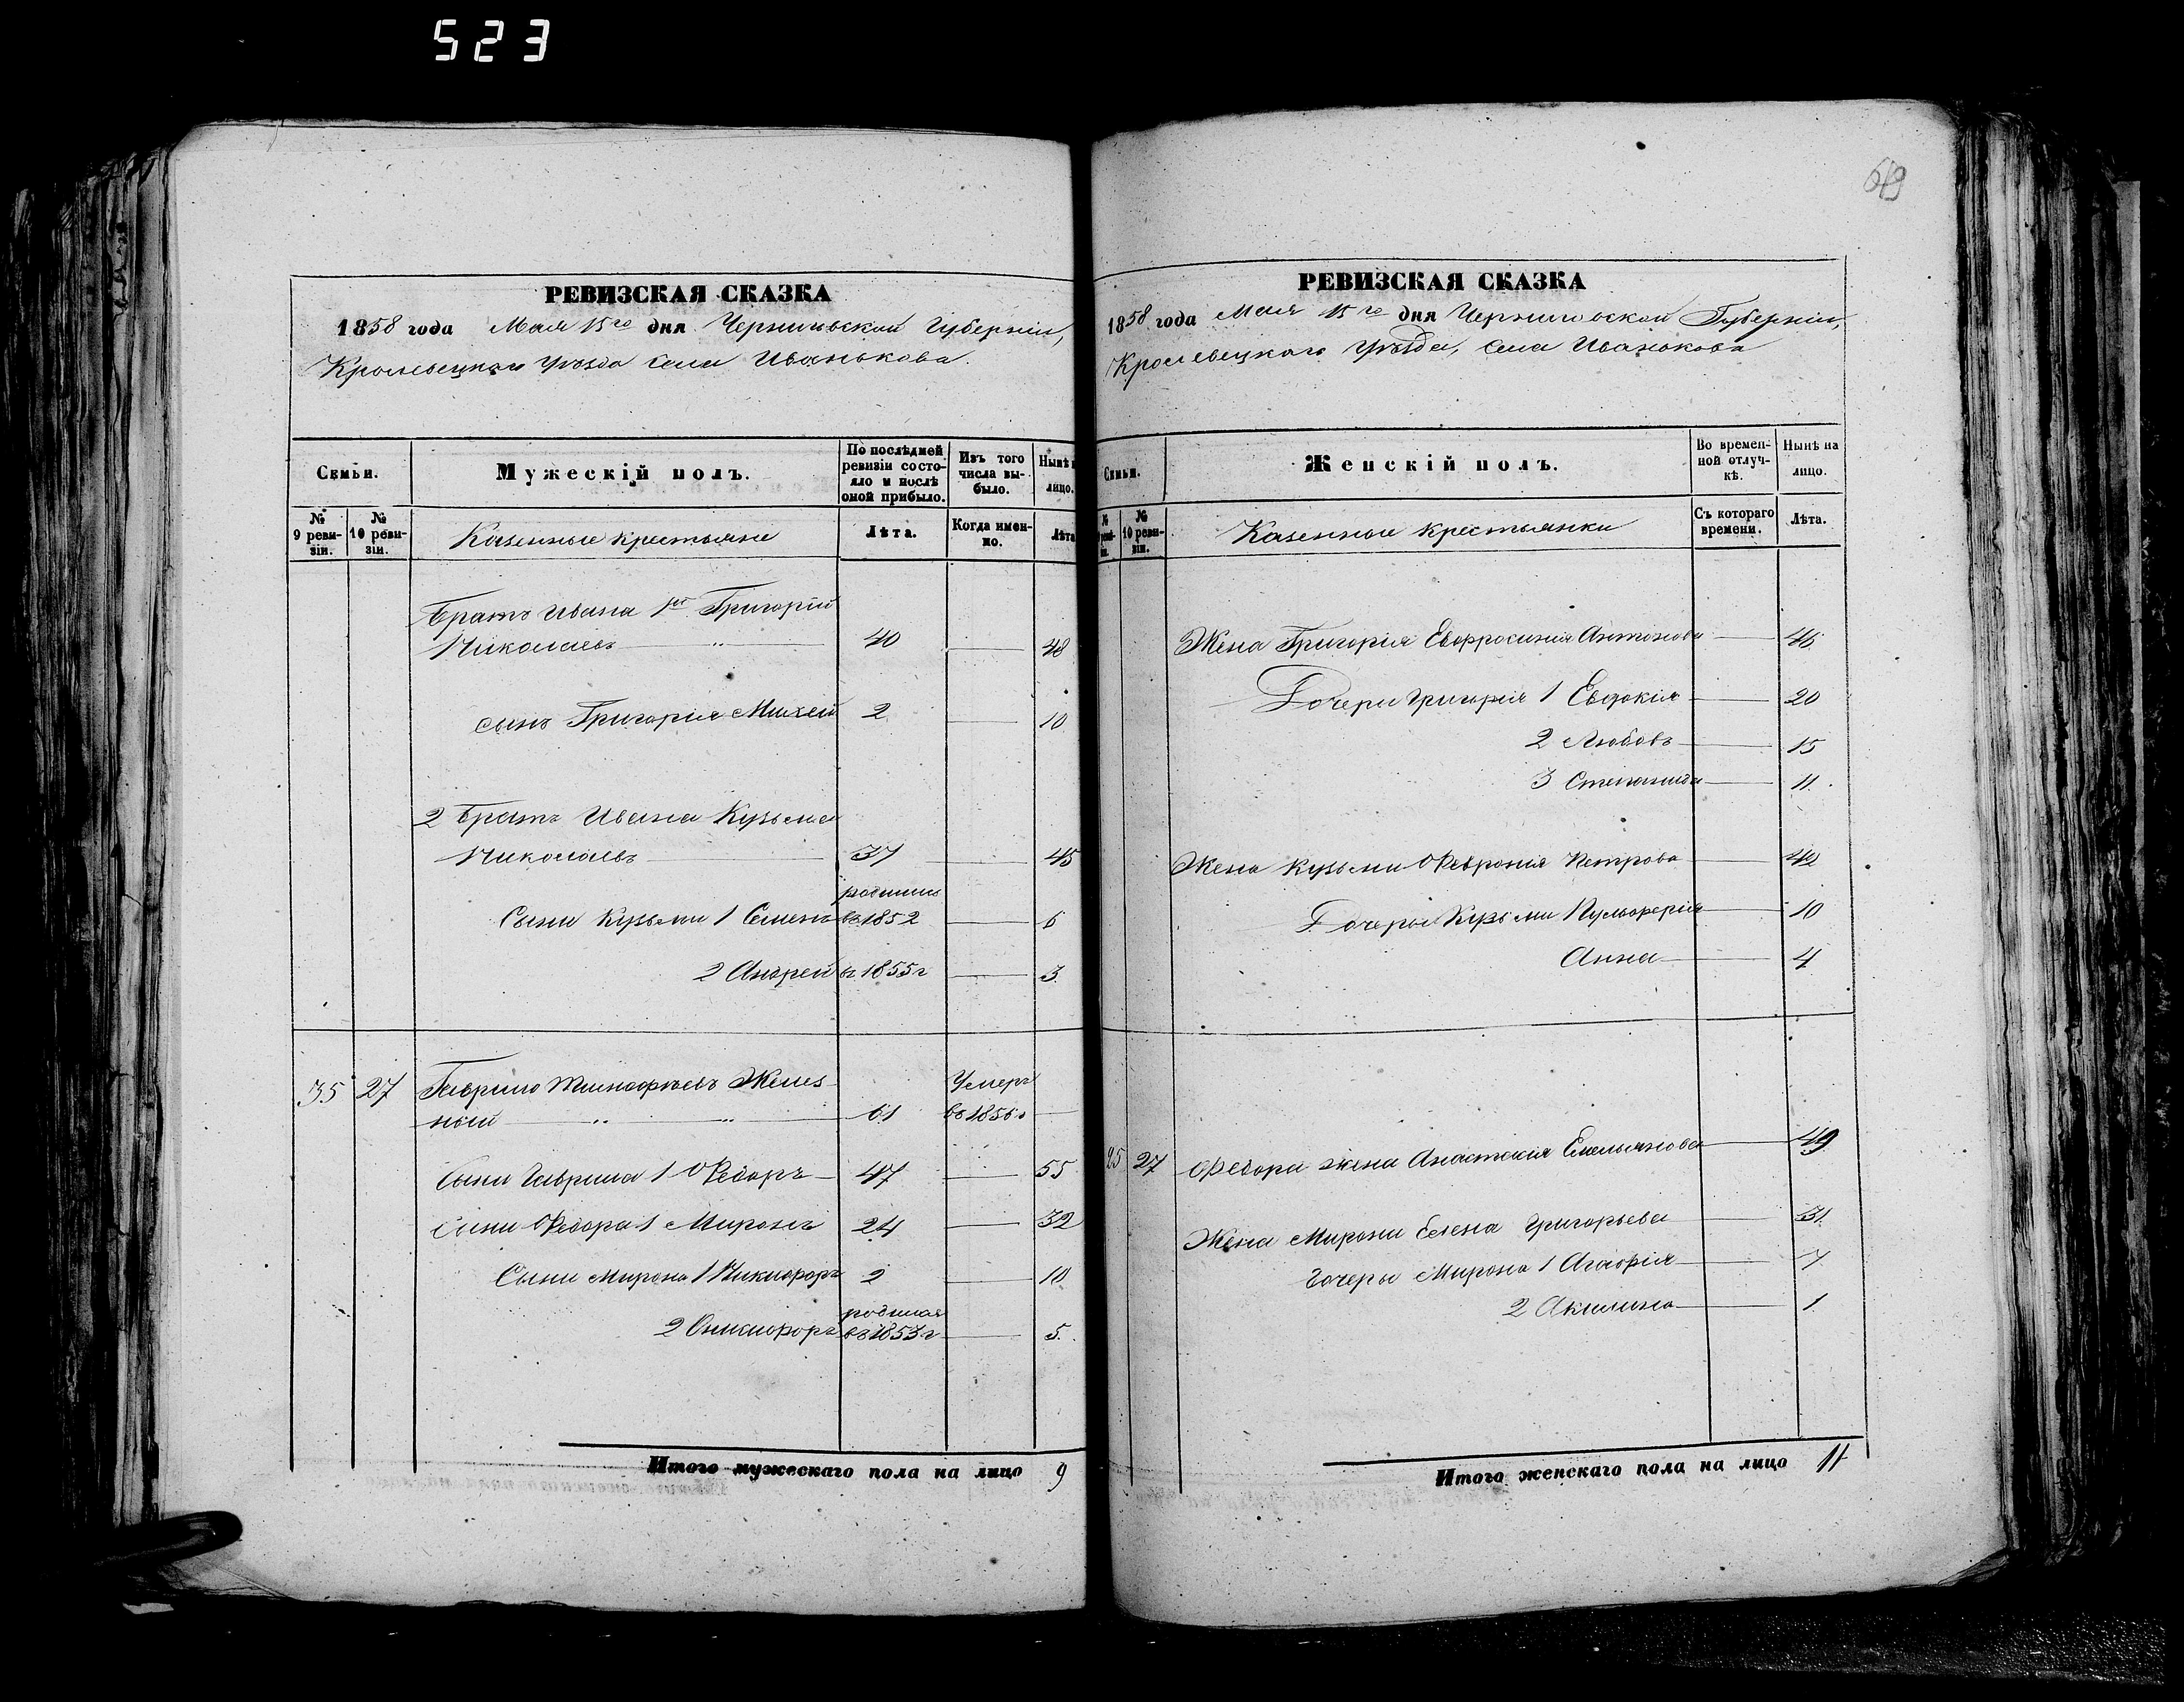 523
649
РЕВИЗСКАЯ СКАЗКА
1858 года Мая 15го дня Черниговской Губерніи,
Кролевецкаго Уѣзда села Иванькова.
Семьи.
Мужескій полъ.
По послѣдней ревизіи состояло и послѣ оной прибыло.
Изъ того числа выбыло.
Нынѣ
лицо.
№ 9 ревизіи.
№ 10 ревизіи.
Казенные крестьяне
Лѣта.
Когда именно.
Лѣта
Братъ Ивана 1й Григорій
Николаевъ 40 48
сынъ Григорія Михей 2 10
2 Братъ Ивана Кузьма
Николаевъ 37 45
родился
Сыни Кузьми 1 Семенъ въ 1852 6
2 Андрей въ 1855 г 3
35 27 Гаврило Тимофѣевъ Желез
Умеръ
ной 61 въ 1856 г
Сыни Гаврила 1 Ѳедоръ 47 55
Сыни Ѳедора 1 Миронъ 24 32
Сыни Мирона 1 Никифоръ 2 10
родился
2 Оникифоръ въ 1853 г 5
Итого мужескаго пола на лицо 9
РЕВИЗСКАЯ СКАЗКА
1858 года Мая 15го дня Черниговской Губерніи,
Кролевецкаго Уѣзда, села Иванькова
Семьи.
Женскій полъ.
Во временной отлучкѣ.
Нынѣ на лицо.
№ 10 ревизіи.
Казенные крестьянки
Съ котораго времени.
Лѣта.
Жена Григорія Евфросинія Антонова 46
Дочери Григорія 1 Евдокія 20
2 Любовь 15
3 Степанида 11
Жена Кузьми Ѳеврония Петрова 42
Дочери Кузьми Пульхерія 10
Анна 4
35 27 Ѳедора жена Анастасія Емельянова 49
Жена Мирона Елена Григорьева 31
Дочери Мирона 1 Агафія 7
2 Акилина 1
Итого женскаго пола на лицо 11